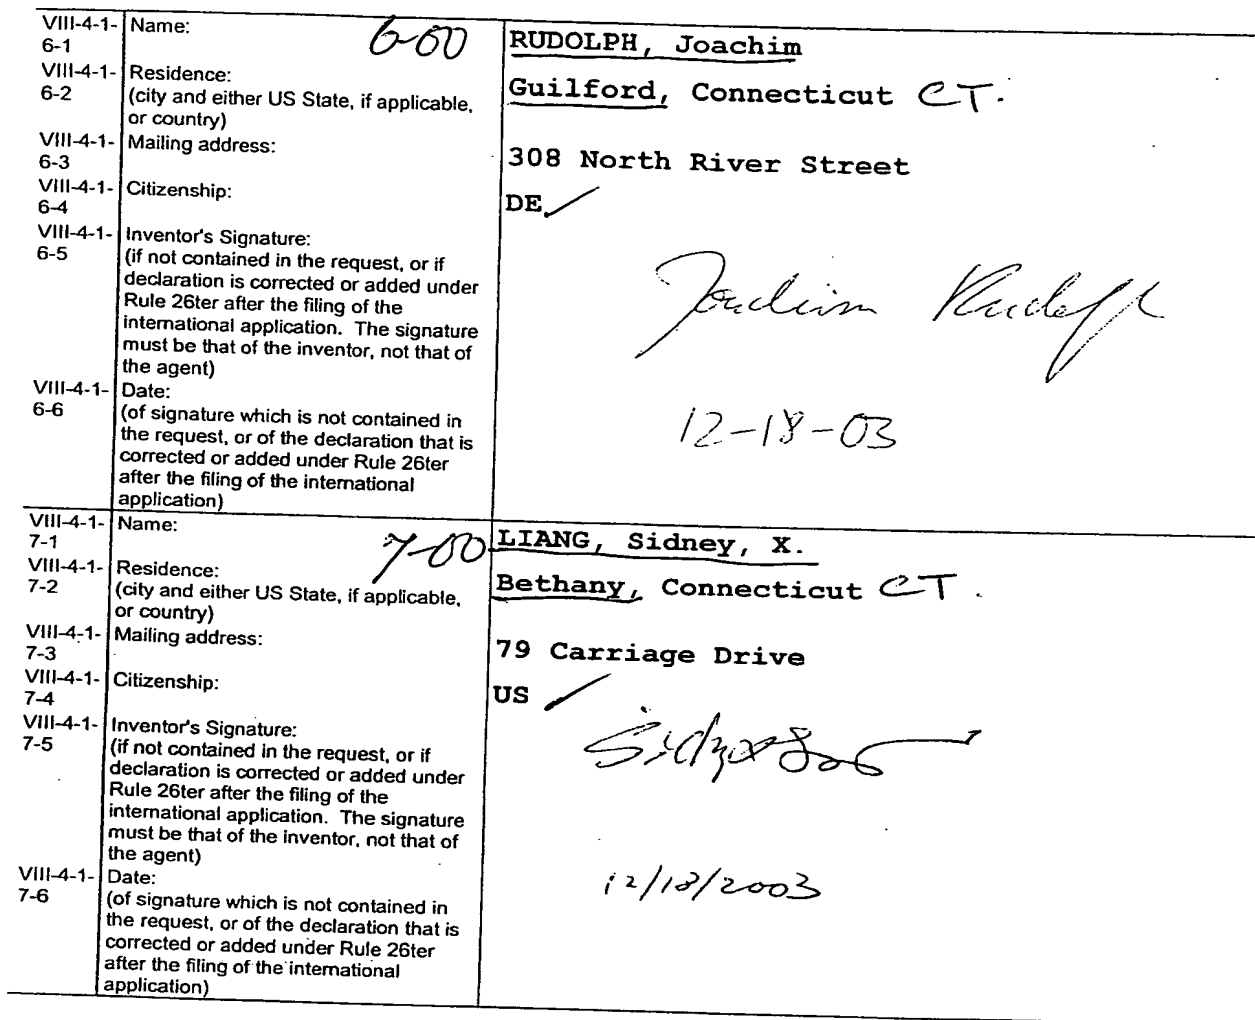 VIII-4-1- Name: 6-00 RUDOLPH, Joachim
6-1
VIII-4-1- Residence: Guilford, Connecticut CT.
6-2 (city and either US State, if applicable,
or country)
VIII-4-1- Mailing address: 308 North River Street
6-3
VIII-4-1- Citizenship: DE
6-4
VIII-4-1- Inventor's Signature:
6-5 (if not contained in the request, or if
declaration is corrected or added under
Rule 26ter after the filing of the
international application. The signature
must be that of the inventor, not that of
the agent)
Joachim Rudolph
VIII-4-1- Date:
6-6 (of signature which is not contained in
the request, or of the declaration that is
corrected or added under Rule 26ter
after the filing of the international
application)
12-18-03
VIII-4-1- Name: 7-00 LIANG, Sidney, X.
7-1
VIII-4-1- Residence: Bethany, Connecticut CT.
7-2 (city and either US State, if applicable,
or country)
VIII-4-1- Mailing address: 79 Carriage Drive
7-3
VIII-4-1- Citizenship: US
7-4
VIII-4-1- Inventor's Signature:
7-5 (if not contained in the request, or if
declaration is corrected or added under
Rule 26ter after the filing of the
international application. The signature
must be that of the inventor, not that of
the agent)
VIII-4-1- Date:
7-6 (of signature which is not contained in
the request, or of the declaration that is
corrected or added under Rule 26ter
after the filing of the international
application)
12/18/2003